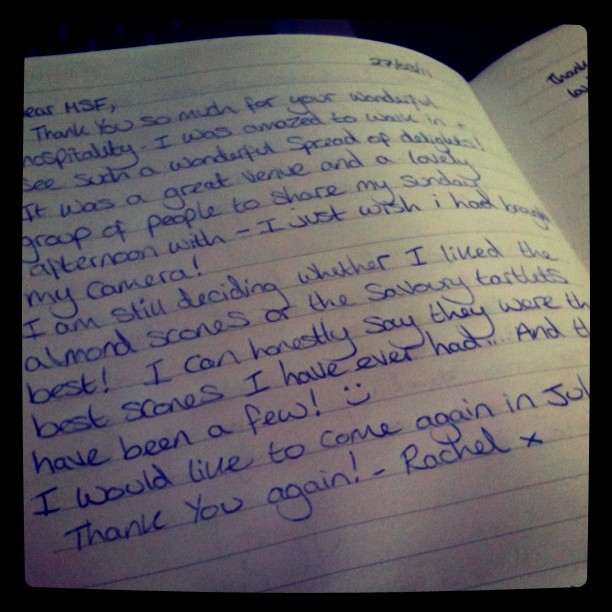 27/02/11
ear MSF,
Thank You so much for your wonderful
hospitality - I was amazed to walk in +
see such a wonderful spread of delights!
It was a great venue and a lovely
group of people to share my sunday
afternoon with - I just wish i had brough
my camera!
I am still deciding whether I liked the
almond scones or the savoury tartlets
best! I can honestly say they were th
best scones I have ever had... And th
have been a few! :)
I would like to come again in Jul
Thank You again! - Rachel x
Thank